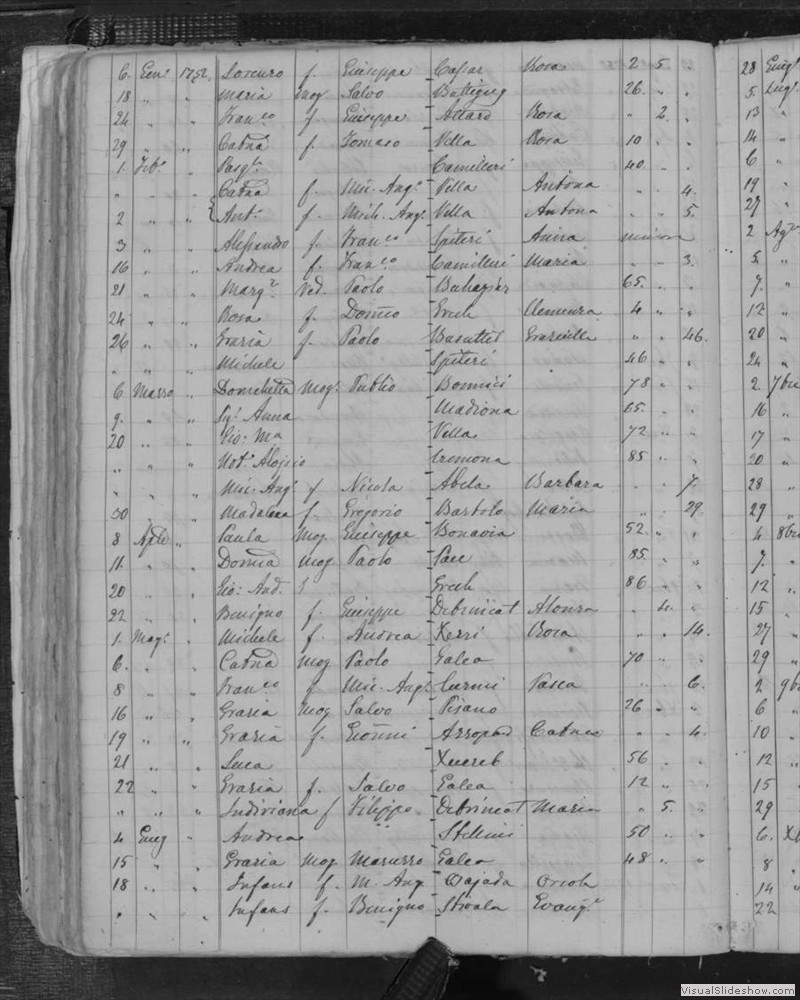 6. Gen. 1752. Lorenzo f. Giuseppe Caſsar Rosa 2 5 „
18 „ „ Maria mog Salvo Buttigieg 26. „ „
24 „ „ Franco f Giuseppe Attard Rosa „ 2. „
29 „ „ Catna f. Tomaso Vella Rosa 10 „ „
1. Feb. „ Pasqle. Camilleri 40. „ „
„ „ „ Catna f. Mic. Ango Vella Antona „ „ 4.
2 „ „ Anto. f. Mich. Ango Vella Antona „ „ 5.
3 „ „ Alessandro f. Franco Spiteri Anna
16 „ „ Andrea f. Franco Camilleri Maria „ „ 3.
21 „ „ Margta ved. Paolo Buhagiar 65. „ „
24 „ „ Rosa f Domco Grech Clemenza 4 „ „
26 „ „ Grazia f. Paolo Busuttil Graziulla „ „ 46.
„ „ „ Michele Spiteri 46 „ „
6. Marzo „ mog. Publio Bonnici 78 „ „
9. „ „ Anna Madiona 65. „ „
20 „ „ Gio: Ma Vella 72 „ „
„ „ „ Not. Aloisio Cremona 85 „ „
„ „ „ Mic. Ang. f Nicola Abela Barbara „ „ 7.
30 „ „ Madalena f. Gregorio Bartolo Maria „ „ 29.
8 Aple „ Paula Mog. Giuseppe Bonavia 52. „ „
11. „ „ Domca mog Paolo Pace 85. „ „
20 „ „ Gio: And. Grech 86 „ „
22 „ „ Benigno f. Giuseppe Debrincat Alonza „ 4. „
1. Mago. „ Michele f. Andrea Xerri Rosa „ „ 14.
6. „ „ Catna mog Paolo Galea 70 „ „
8 „ „ Franco f Mic. Ango Curmi Pasca „ „ 6.
16 „ „ Grazia Mog Salvo Pisano 26 „ „
19 „ „ Grazia f. Gionni Azzopard Catnea „ „ 4.
21 „ „ Luca Xuereb 56 „ „
22 „ „ Grazia f. Salvo Galea 12 „ „
„ „ „ f Filippo Debrincat Maria „ 5. „
4 Giug „ Andrea Stellini 50 „ „
15 „ „ Grazia Mog Maruzzo Galea 48 „ „
18 „ „ Infans f. M. Ang. Cajada
„ „ „ Infans f. Benigno Stivala Evanga
28 Giugo
5. Lugo.
13 „
14 „
6 „
19 „
27 „
2 Ago
5. „
7. „
12 „
20 „
24 „
2. 7bre
16 „
17 „
20 „
28 „
29 „
4 8bre
7. „
12 „
15 „
27 „
29 „
2 9bre
6 „
10 „
12 „
15 „
29 „
6. X
8 „
14 „
22
VisualSlideshow.com